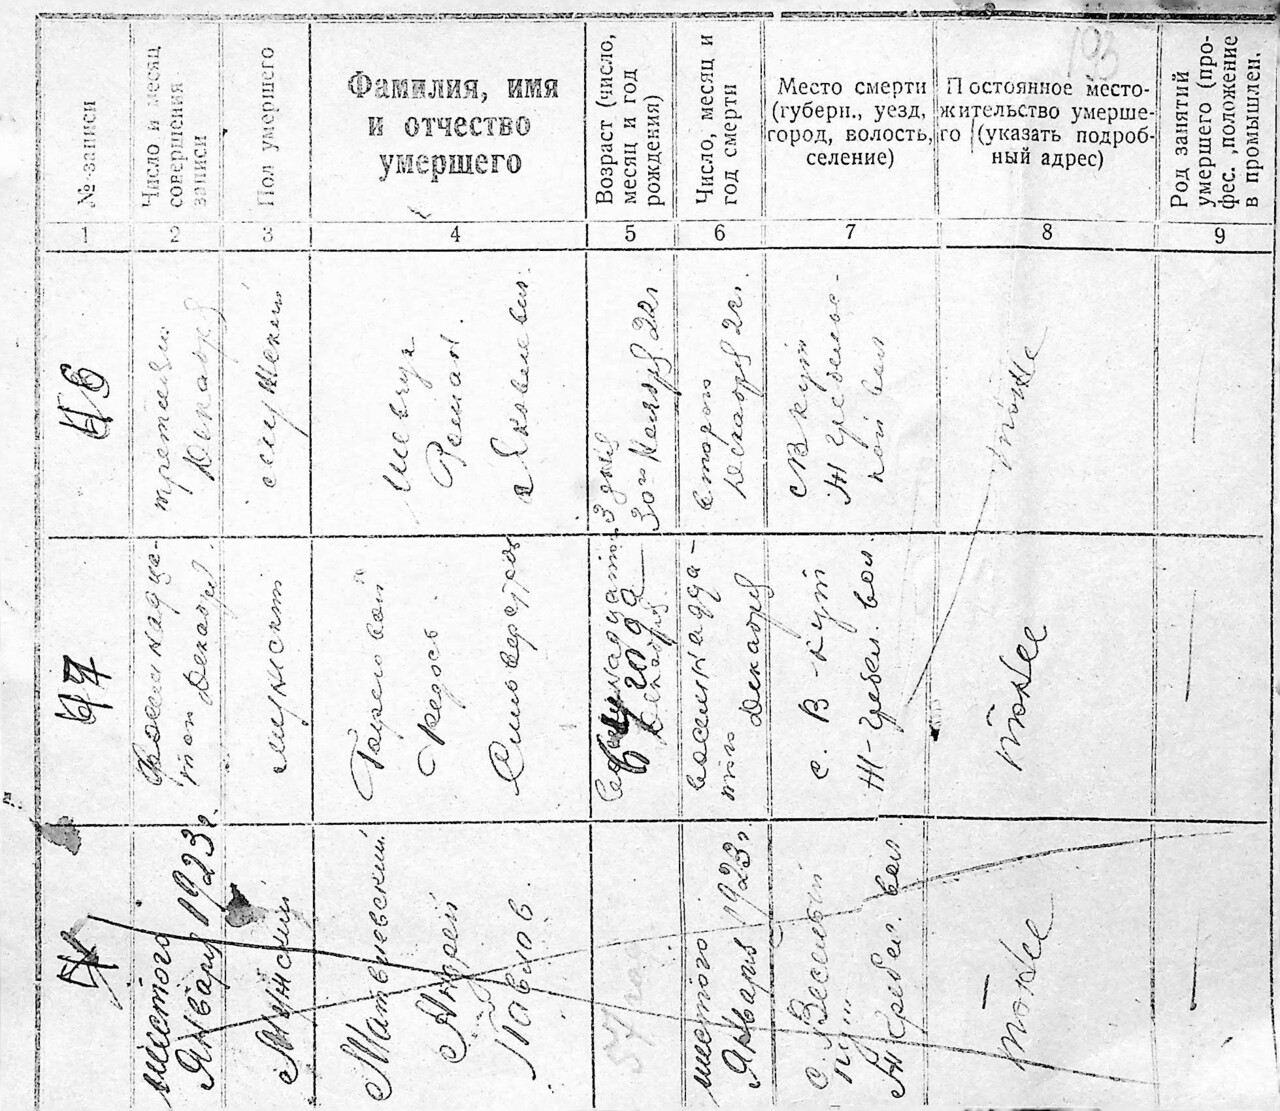 193
№ записи
Число и месяц
совершения
записи
Пол умершего
Фамилия, имя
и отчество
умершего
Возраст (число,
месяц и год
рождения)
Число, месяц и
год смерти
Место смерти
(губерн., уезд,
город, волость,
селение)
Постоянное место-
жительство умерше-
го (указать подроб-
ный адрес)
Род занятий
умершего (про-
фес., положение
в промышлен.
1
2
3
4
5
6
7
8
9
третьяго
Декабря
мужеский
Шевчук
Роман
Яковлевич
3 дня
30го Ноября 22г.
второго
Декабря 22г.
С В кут
Ж Гребель-
кой вол
тоже
—
47
Восемнадца-
того Декабря
мужски
Федось
Сильвестров
Декабря
восемнадца-
того
Декабря
с. В-кут
Ж-Гребел. вол.
тоже
—
шестого
Января 1923г.
Мужской
Матвиевский
Андрей
Павлов
57
шестого
Января 1923г.
с. Веселый
Ж Гребел. вол.
— тоже
—